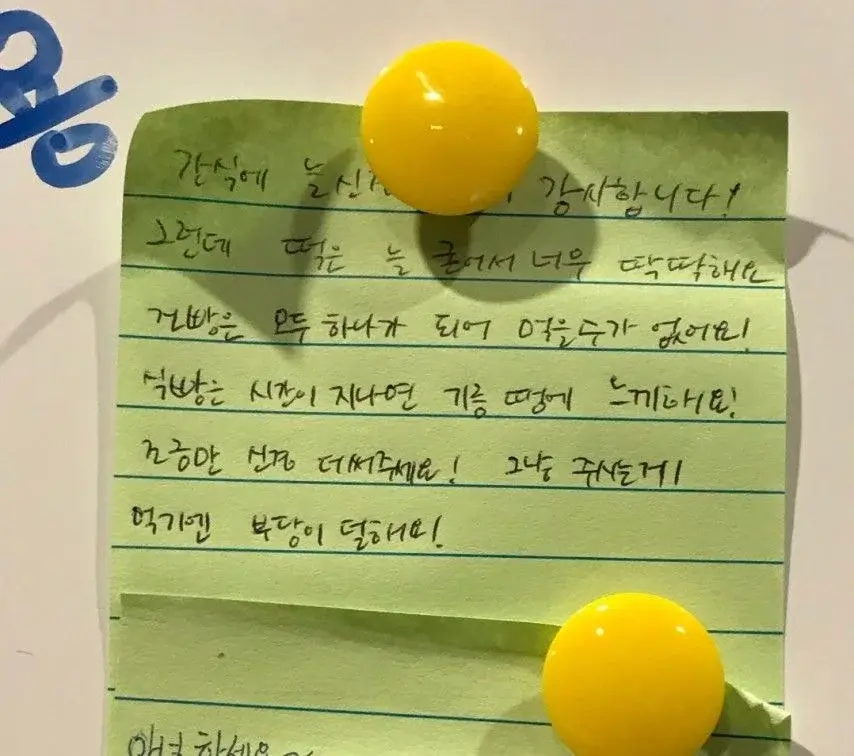 간식에 늘 신경 감사합니다!
그런데 떡은 늘 굳어서 너무 딱딱해요
건빵은 모두 하나가 되어 먹을수가 없어요!
식빵은 시간이 지나면 기름 땜에 느끼해요!
조금만 신경 더써주세요! 그냥 주시는게
먹기엔 부담이 덜해요!
안녕하세요